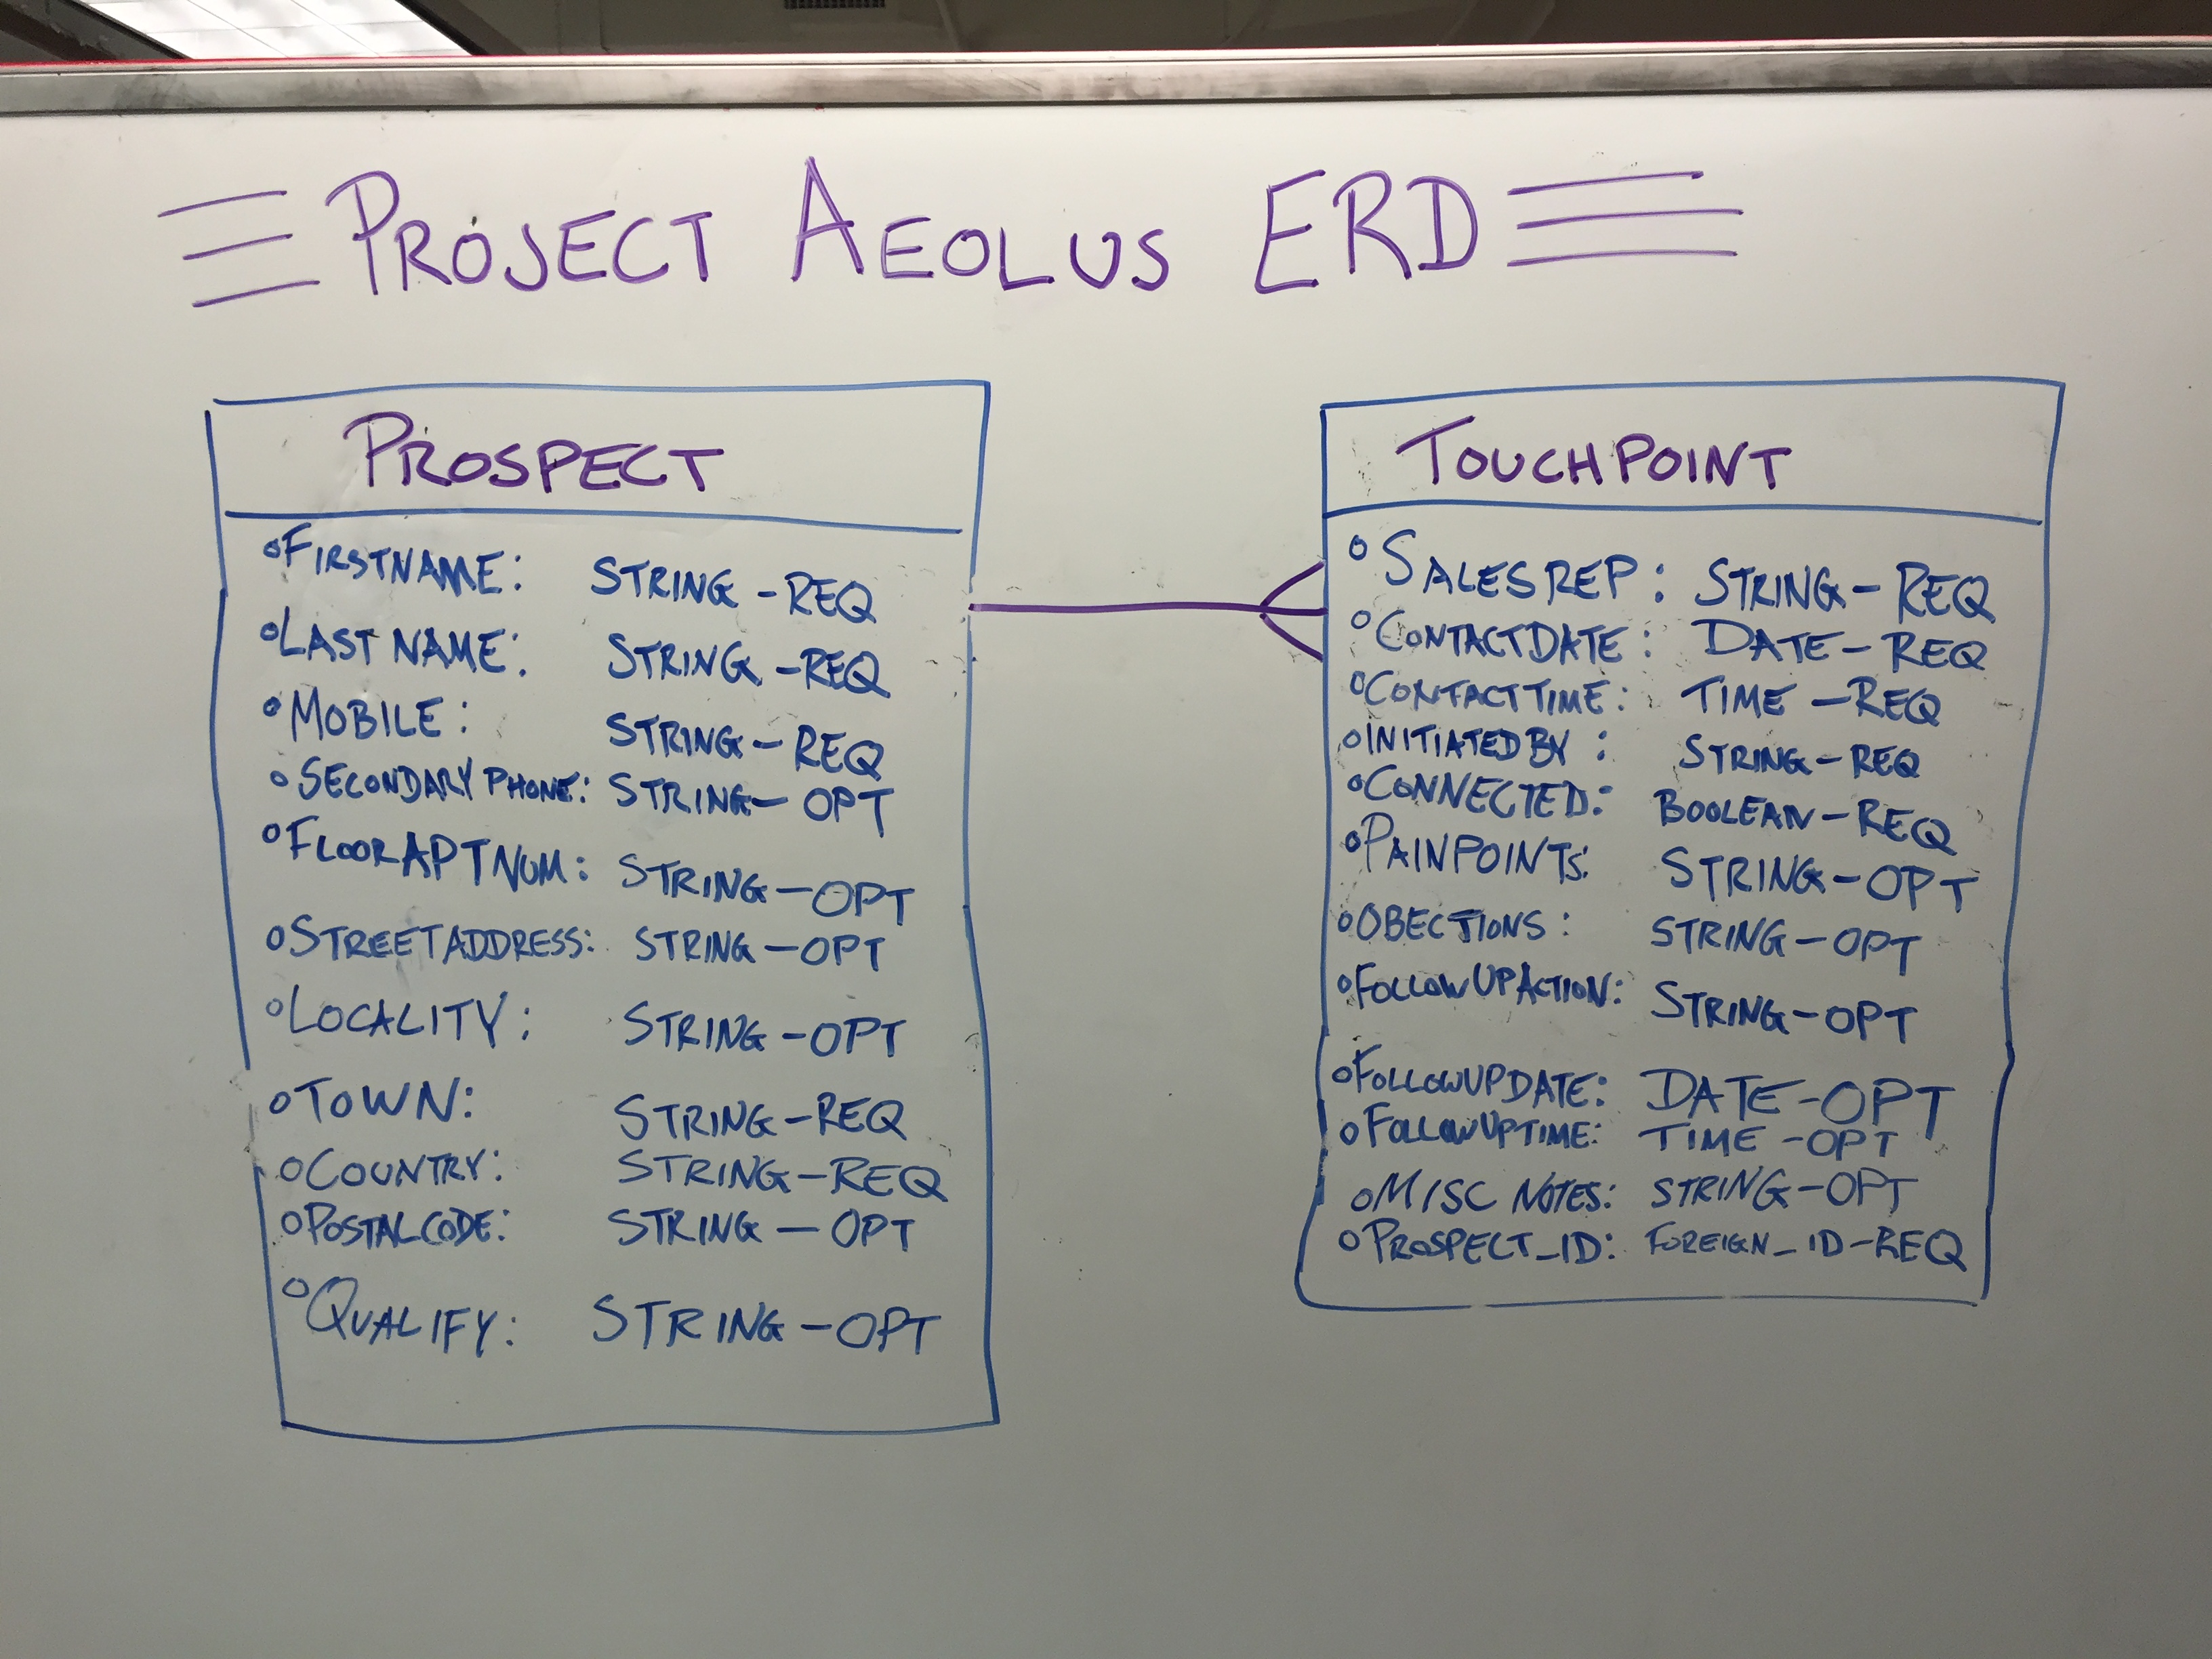 PROJECT AEOLUS ERD
PROSPECT
FIRSTNAME: STRING-REQ
LAST NAME: STRING-REQ
MOBILE: STRING-REQ
SECONDARY PHONE: STRING-OPT
FLOORAPTNUM: STRING-OPT
STREETADDRESS: STRING-OPT
LOCALITY: STRING-OPT
TOWN: STRING-REQ
COUNTRY: STRING-REQ
POSTALCODE: STRING-OPT
QUALIFY: STRING-OPT
TOUCHPOINT
SALESREP: STRING-REQ
CONTACTDATE: DATE-REQ
CONTACTTIME: TIME-REQ
INITIATEDBY: STRING-REQ
CONNECTED: BOOLEAN-REQ
PAINPOINTS: STRING-OPT
OBECTIONS: STRING-OPT
FOLLOWUPACTION: STRING-OPT
FOLLOWUPDATE: DATE-OPT
FOLLOWUPTIME: TIME-OPT
MISC NOTES: STRING-OPT
PROSPECT_ID: FOREIGN_ID-REQ